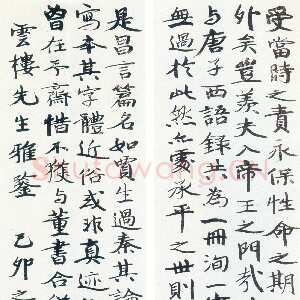 受當時之責永保性命之期
外矣豈羨夫入帝王之門哉
与唐子西語録共為一冊洵一
無過於此然亦處承平之世則
是昌言篇名如賈生過秦其論
寫本其字體近俗或非真迹
曾在予齋惜不獲與董書合
雲樓先生雅鑒 己卯之